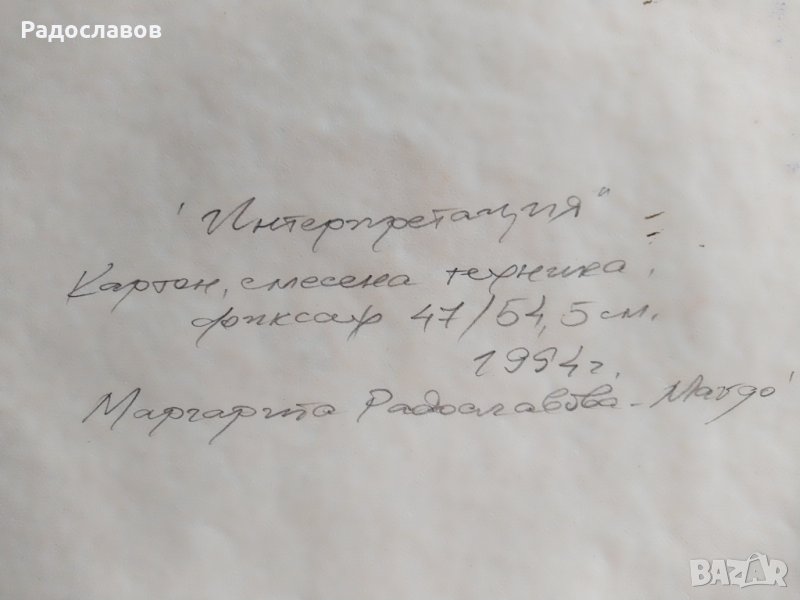 Радославов
'Интерпретация"
Картон, смесена техника,
фиксаж 47/54,5 см.
1994г.
Маргарита Радославова -
BAZAR